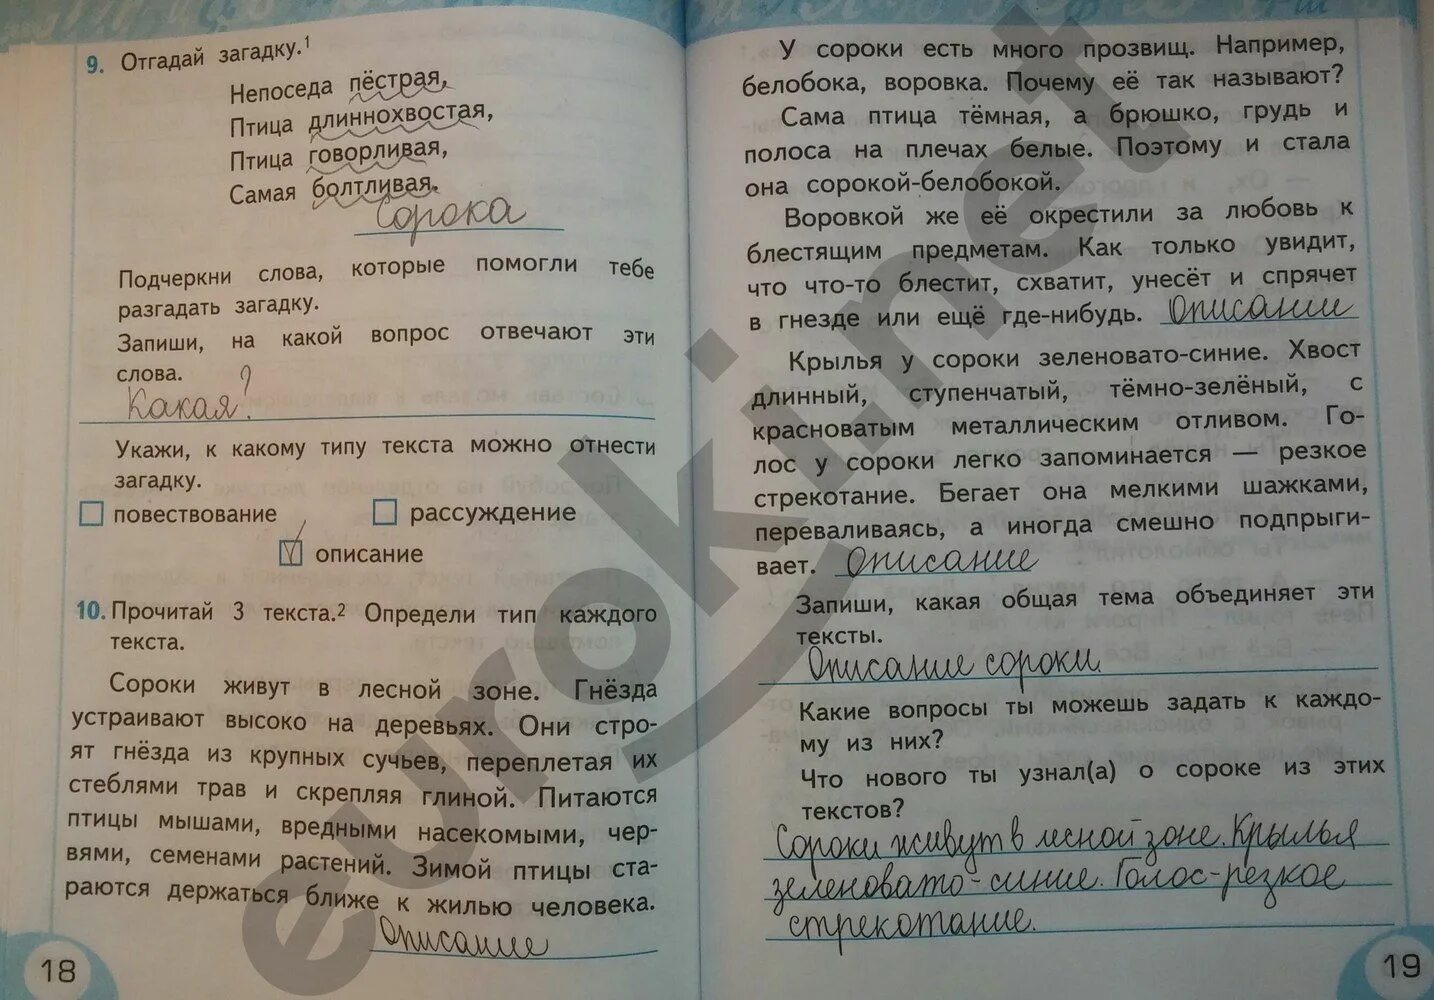 9. Отгадай загадку.¹
Непоседа пёстрая,
Птица длиннохвостая,
Птица говорливая,
Самая болтливая.
Сорока
Подчеркни слова, которые помогли тебе
разгадать загадку.
Запиши, на какой вопрос отвечают эти
слова.
Какая?
Укажи, к какому типу текста можно отнести
загадку.
повествование
рассуждение
описание
10. Прочитай 3 текста.² Определи тип каждого
текста.
Сороки живут в лесной зоне. Гнёзда
устраивают высоко на деревьях. Они стро-
ят гнёзда из крупных сучьев, переплетая их
стеблями трав и скрепляя глиной. Питаются
птицы мышами, вредными насекомыми, чер-
вями, семенами растений. Зимой птицы ста-
раются держаться ближе к жилью человека.
Описание
18
У сороки есть много прозвищ. Например,
белобока, воровка. Почему её так называют?
Сама птица тёмная, а брюшко, грудь и
полоса на плечах белые. Поэтому и стала
она сорокой-белобокой.
Воровкой же её окрестили за любовь к
блестящим предметам. Как только увидит,
что что-то блестит, схватит, унесёт и спрячет
в гнезде или ещё где-нибудь. Описание
Крылья у сороки зеленовато-синие. Хвост
длинный, ступенчатый, тёмно-зелёный, с
красноватым металлическим отливом. Го-
лос у сороки легко запоминается — резкое
стрекотание. Бегает она мелкими шажками,
переваливаясь, а иногда смешно подпрыги-
вает. Описание
Запиши, какая общая тема объединяет эти
тексты.
Описание сороки.
Какие вопросы ты можешь задать к каждо-
му из них?
Что нового ты узнал(а) о сороке из этих
текстов?
Сороки живут в лесной зоне. Крылья
зеленовато-синие. Голос-резкое
стрекотание.
19
euroki.net